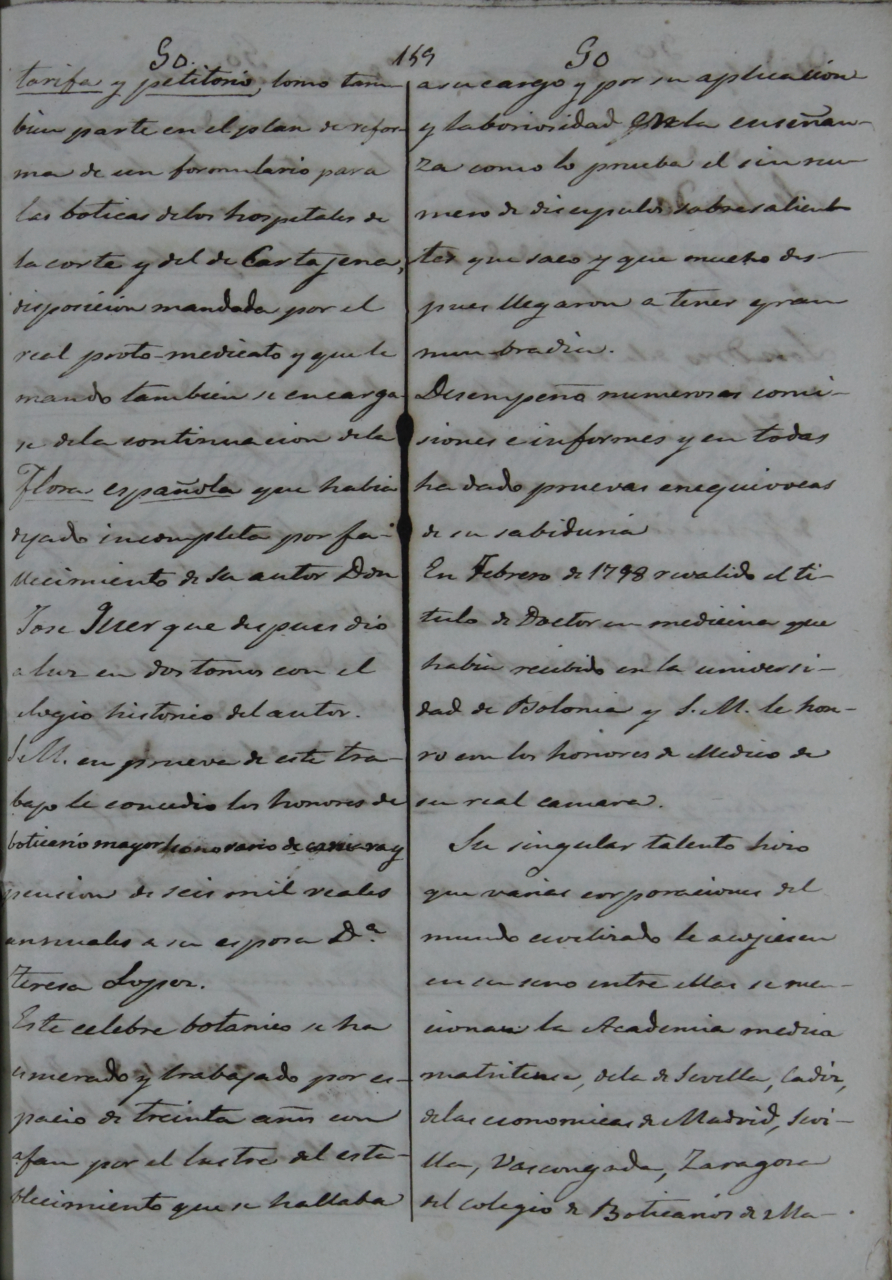 Go. 159 Go
tarifa y petitorio, como tam-
bien parte en el plan de refor-
ma de un formulario para
las boticas delos hospitales de
la corte y del de Cartajena,
disposición mandada por el
real proto-medicato y que le
mando tambien se encarga-
se dela continuacion dela
Flora española que habia
dejado incompleta por fa-
llecimiento de su autor Don
Jose Quer que despues dio
a luz en dos tomos con el
elogio historio del autor.
S. M. en prueva de este tra-
bajo le concedio los honores de
boticario mayor honorario de camara y
pension de seis mil reales
annuales a su esposa D.ª
Teresa Lopez.
Este celebre botanico se ha
esmerado y trabajado por es-
pacio de treinta años con
afan por el lustre del esta-
blecimiento que se hallaba
a su cargo y por su aplicacion
y laboriosidad en la enseñan-
za como lo prueba el sin nu-
mero de discipulos sobresalient
tes que saco y que mucho des-
pues llegaron a tener gran
nombradia.
Desempeño numerosas comi-
siones e informes y en todas
ha dado pruevas enequivocas
de su sabiduria
En Febrero de 1798 revalido el ti-
tulo de Doctor en medicina que
habia recibido en la universi-
dad de Bolonia y S. M. le hon-
ro con los honores de Medico de
su real camara.
Su singular talento hizo
que varias corporaciones del
mundo civilizado le acojiesen
en su seno entre ellas se men-
cionan la Academia medica
matritense, dela de Sevilla, Cadiz,
delas economicas de Madrid, Sevi-
lla, Vascongada, Zaragoza
del colegio de Boticarios de Ma-